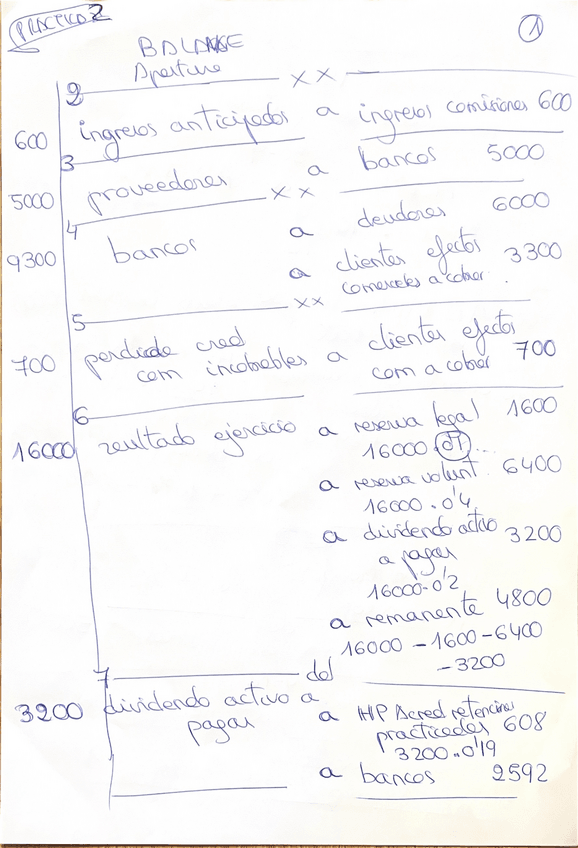 PRACTICA 2
1
BALANCE
Apertura
2 x x
600 ingresos anticipados a ingresos comisiones 600
3
5000 proveedores a bancos 5000
4 x x
9300 bancos a deudores 6000
a clientes efectos 3300
comerciales a cobrar.
5 x x
700 perdida cred a clientes efectos
com incobrables com a cobrar 700
6
16000 resultado ejercicio a reserva legal 1600
16000 . 0'1
a reserva volunt 6400
16000 . 0'4
a dividendo activo 3200
a pagar
16000 . 0'2
a remanente 4800
16000 - 1600 - 6400
- 3200
7 del
3200 dividendo activo a
pagar a HP Acred retenciones
practicadas 608
3200 . 0'19
a bancos 2592